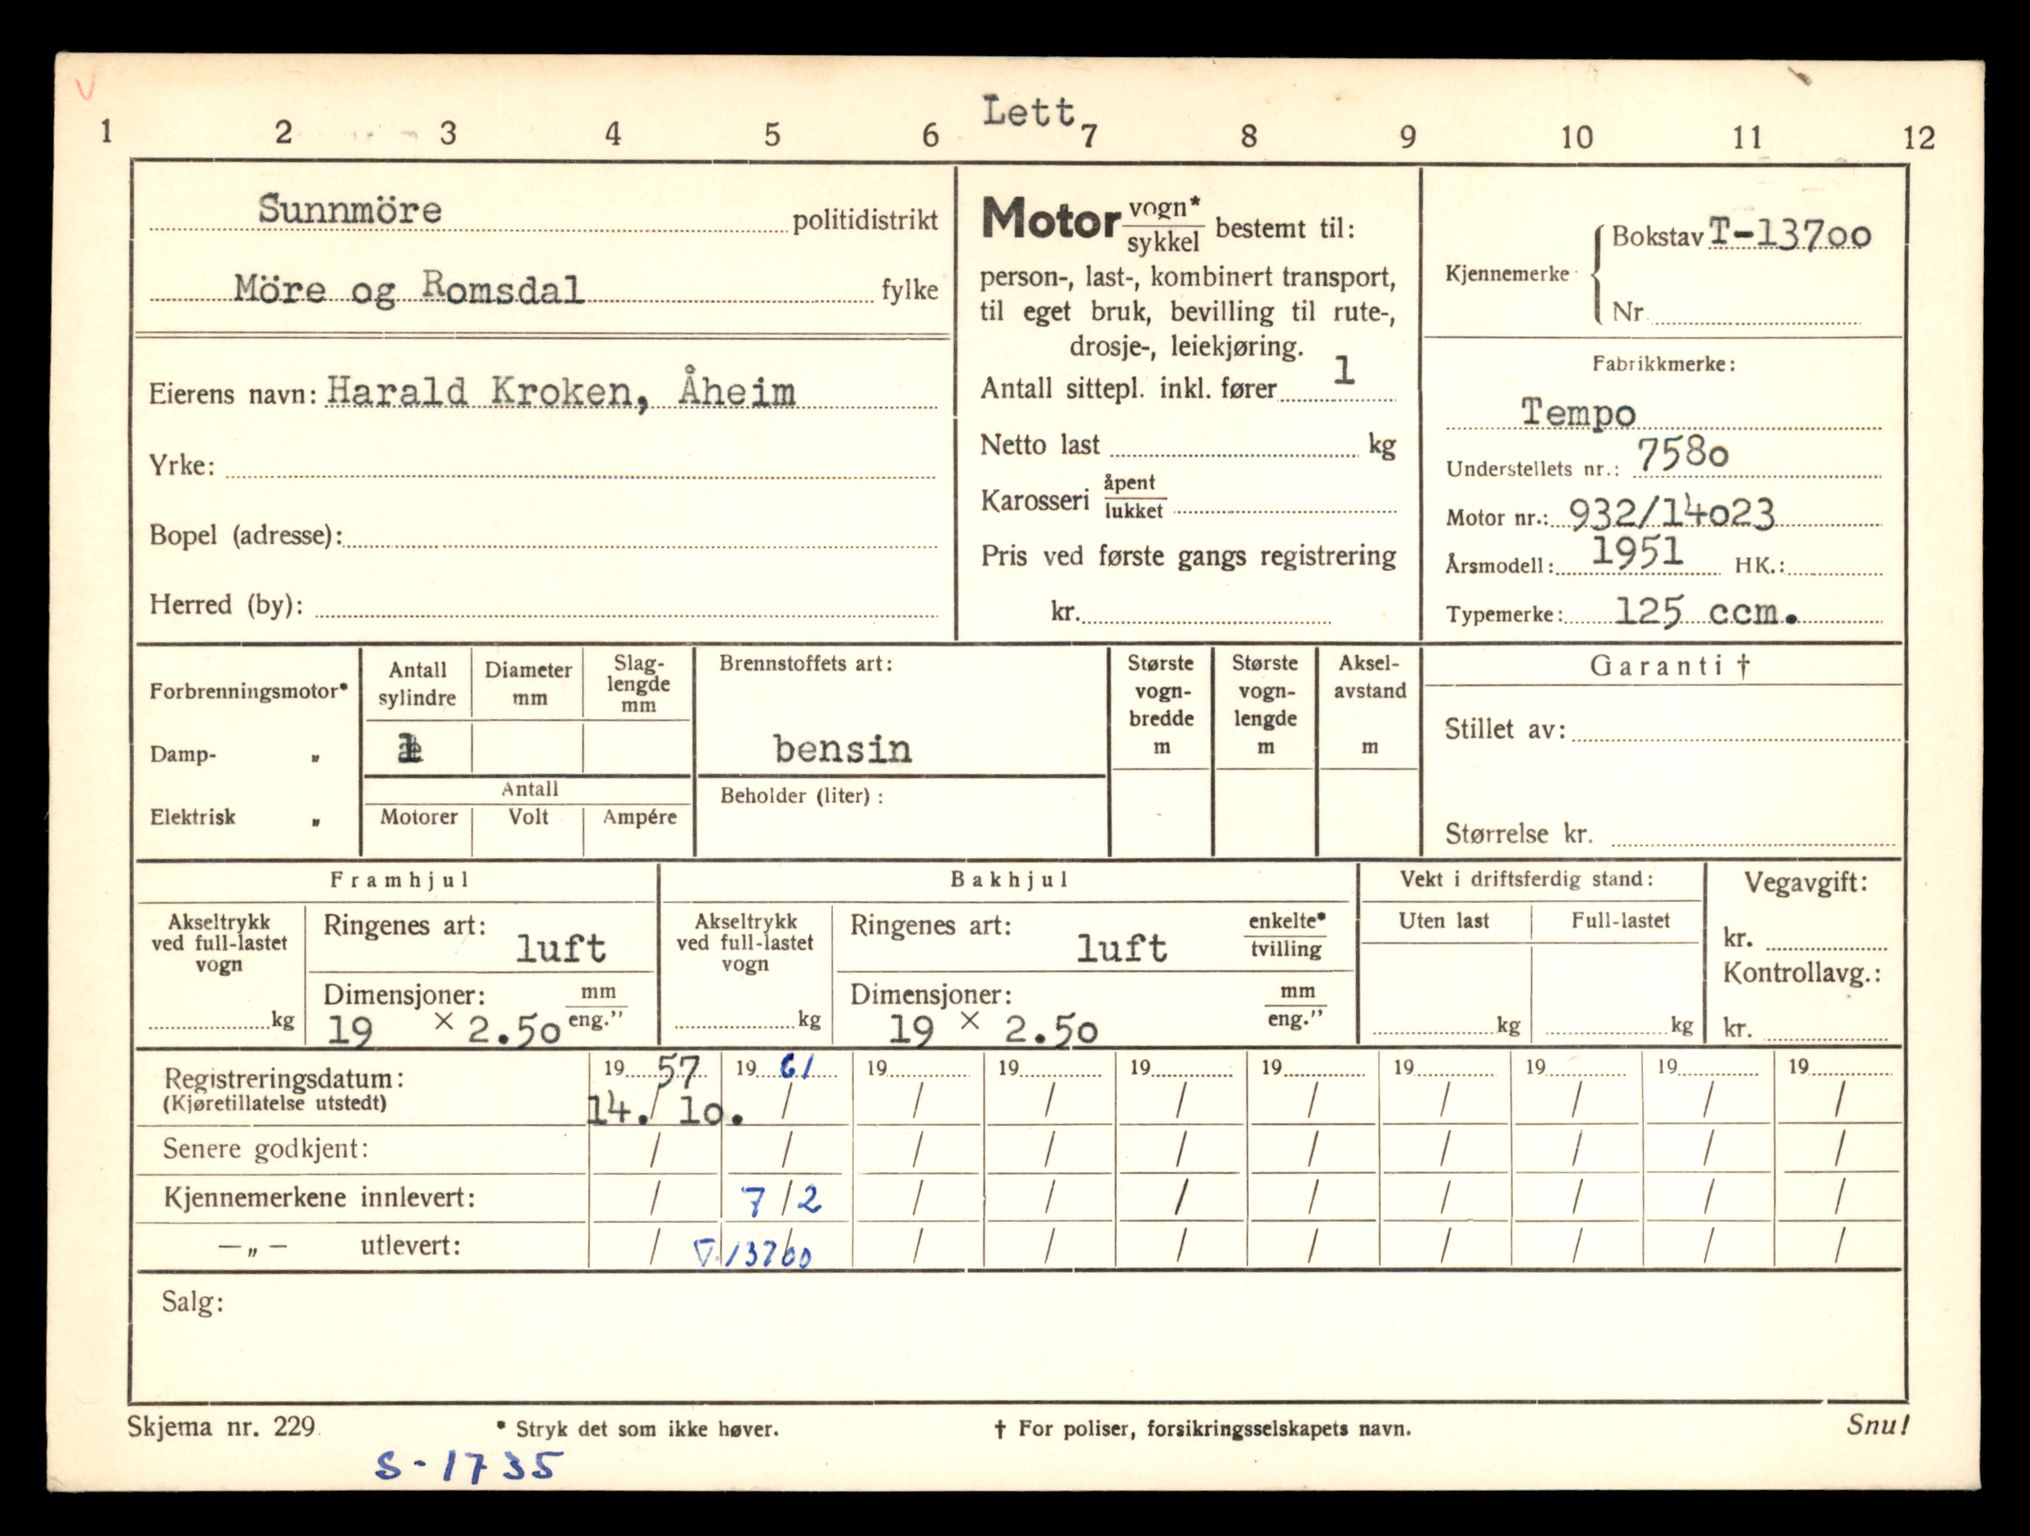 V
Lett
1 2 3 4 5 6 7 8 9 10 11 12
Sunnmöre politidistrikt
Möre og Romsdal fylke
Eierens navn: Harald Kroken, Åheim
Yrke:
Bopel (adresse):
Herred (by):
Motor vogn* / sykkel bestemt til:
person-, last-, kombinert transport,
til eget bruk, bevilling til rute-,
drosje-, leiekjøring.
Antall sittepl. inkl. fører 1
Netto last kg
Karosseri åpent / lukket
Pris ved første gangs registrering
kr.
Kjennemerke { Bokstav T-13700
Nr.
Fabrikkmerke:
Tempo
Understellets nr.: 7580
Motor nr.: 932/14023
Årsmodell: 1951 HK.:
Typemerke: 125 ccm.
Forbrenningsmotor*
Damp- „
Elektrisk „
Antall sylindre
1
Diameter mm
Slag-
lengde
mm
Antall
Motorer Volt Ampére
Brennstoffets art:
bensin
Beholder (liter) :
Største
vogn-
bredde
m
Største
vogn-
lengde
m
Aksel-
avstand
m
Garanti †
Stillet av:
Størrelse kr.
Framhjul
Akseltrykk
ved full-lastet
vogn
kg
Ringenes art:
luft
Dimensjoner: mm / eng.”
19 × 2.50
Bakhjul
Akseltrykk
ved full-lastet
vogn
kg
Ringenes art: enkelte* / tvilling
luft
Dimensjoner: mm / eng.”
19 × 2.50
Vekt i driftsferdig stand:
Uten last Full-lastet
kg kg
Vegavgift:
kr.
Kontrollavg.:
kr.
Registreringsdatum: 19 57 19 61 19 19 19 19 19 19 19 19
(Kjøretillatelse utstedt) 14. / 10. / / / / / / / / /
Senere godkjent: / / / / / / / / / /
Kjennemerkene innlevert: / 7/2 / / / / / / / /
— „ — utlevert: / T.13700 / / / / / / / /
Salg:
Skjema nr. 229 * Stryk det som ikke høver. † For poliser, forsikringsselskapets navn. Snu!
S-1735